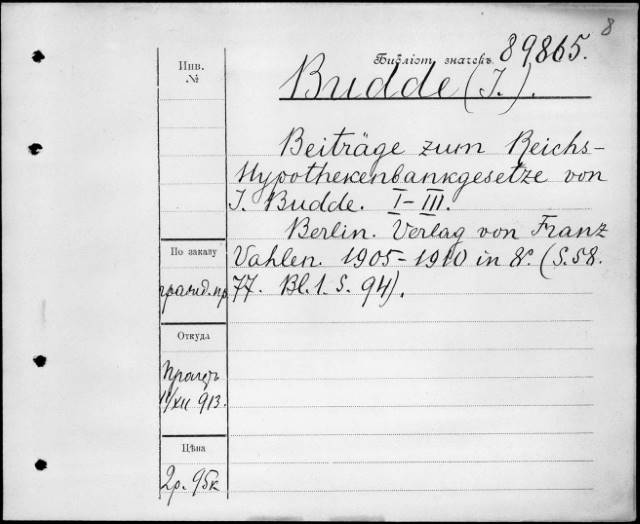 8
Библіот. значекъ 89865.
Инв.
№
Budde (J.).
Beiträge zum Reichs-
Hypothekenbankgesetze von
J. Budde. I-III.
Berlin. Verlag von Franz
Vahlen. 1905-1910 in 8º. (S. 58.
77. Bl. 1. S. 94).
По заказу
гражд. пр.
Откуда
11/XII 913.
Цѣна
2р. 95к